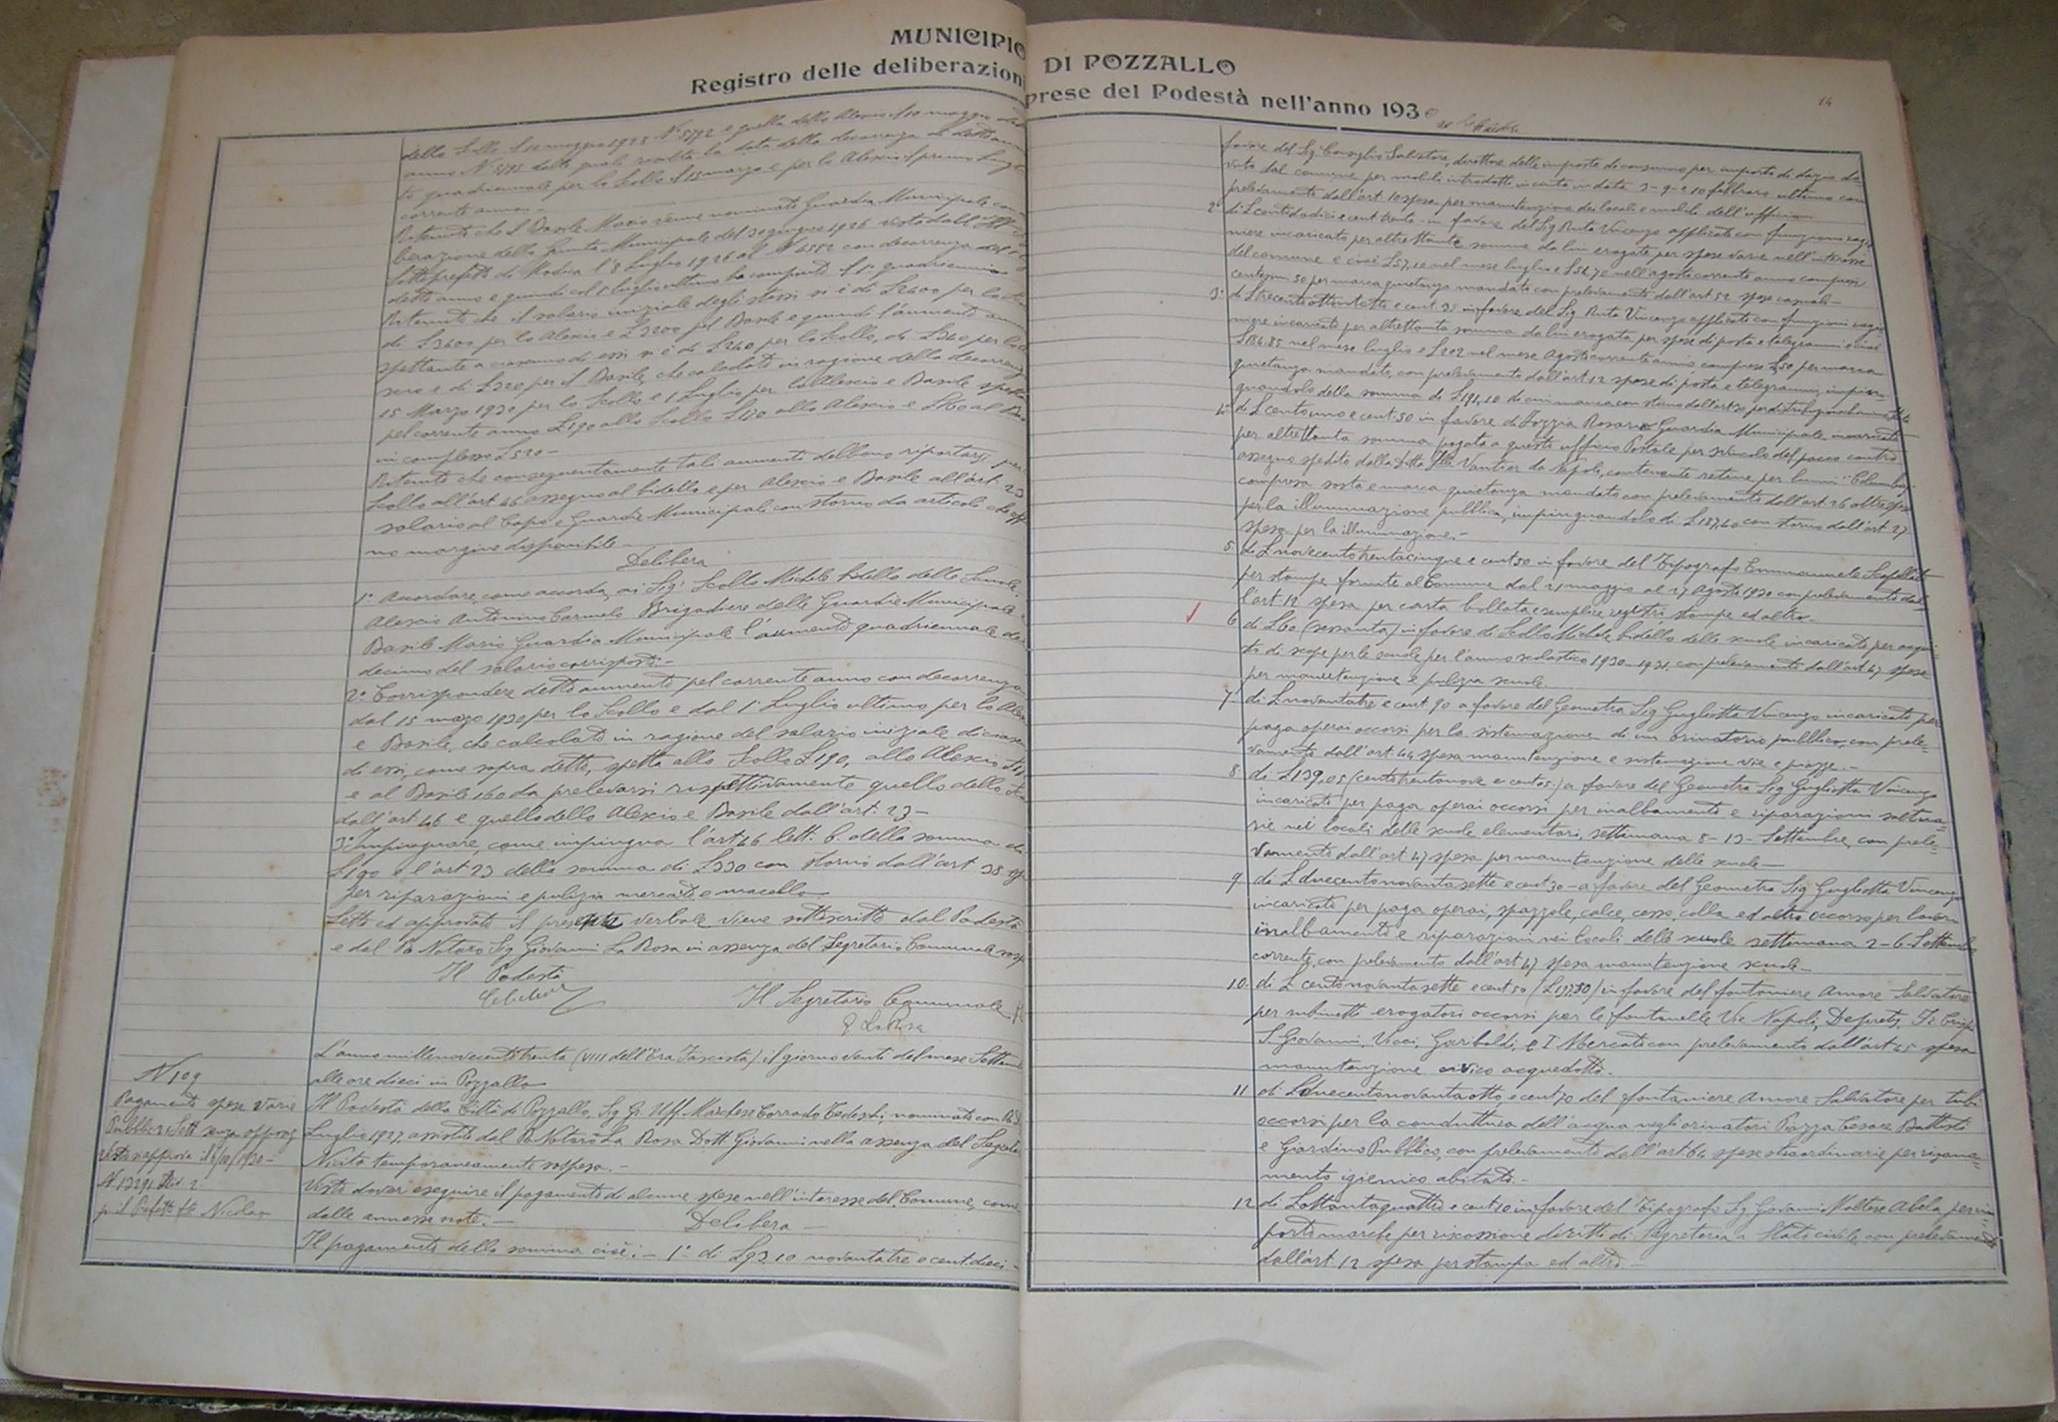 MUNICIPIO DI POZZALLO
Registro delle deliberazioni prese del Podestà nell'anno 1930
14
della Scollo
corrente anno.
Ritenuto che il Basile Mario venne nominato Guardia Municipale con
berazione della Giunta Municipale del 30 giugno 1926 vistata dall'Ill.
Sottoprefetto di Modica l'8 Luglio 1926 al N 6552 con decorrenza dal 1
detto anno e quindi col 1 luglio ultimo ha compiuto il 1° quadriennio
Ritenuto che il salario iniziale degli stessi si è di £2400 per lo
di £3400 per lo Alescio e £3200 pel Basile e quindi l'aumento
spettante a ciascuno di essi si è di £240 per lo Scollo, di £340 per lo
scio e di £320 per il Basile, che calcolato in ragione della decorrenza
15 Marzo 1930 per lo Scollo e 1 Luglio per lo Alescio e Basile spetta
pel corrente anno £190 allo Scollo £170 allo Alescio e £160 al
in complesso £520 -
Ritenuto che conseguentemente tale aumento debbono riportarsi per
Scollo all'art 46 assegno al bidello e per Alescio e Basile all'art. 23
salario al Capo e Guardie Municipali con storno da articoli che
no margine disponibile
Delibera
1° Accordare, come accorda, ai Sig. Scollo Michele bidello delle Scuole,
Alescio Antonino Carmelo Brigadiere delle Guardie Municipali e
Basile Mario Guardia Municipale l'aumento quadriennale del
decimo del salario corrisposto -
2° Corrispondere detto aumento pel corrente anno con decorrenza
dal 15 marzo 1930 per lo Scollo e dal 1° Luglio ultimo per lo Ale
e Basile, che calcolato in ragione del salario iniziale di ciascu
di essi, come sopra detto, spetta allo Scollo £190, allo Alescio
e al Basile 160 da prelevarsi rispettivamente quello dello
dall'art. 46 e quello dello Alescio e Basile dall'art. 23 -
3° Impinguare, come impingua l'art 46 lett. b. della somma di
£190 e l'art 23 della somma di £330 con storno dall'art 38
per riparazioni e pulizia mercato e macello
Letto ed approvato il presente verbale viene sottoscritto dal Podestà
e dal R. Notaro Sig Giovanni La Rosa in assenza del Segretario Comunale
Il Podestà
Il Segretario Comunale
G La Rosa
N 109
Pagamento spese varie
N 13291 Div 2
p. il Prefetto fto Nicolar
L'anno millenovecentotrenta (VIII dell'Era Fascista) il giorno venti del mese Settem
alle ore dieci in Pozzallo
Il Podestà della Città di Pozzallo, Sig. Gr. Uff. Marchese Corrado Tedeschi, nominato con
Luglio 1927, assistito dal R. Notaro La Rosa Dott Giovanni nella assenza del Segreta
Nicita temporaneamente sospeso. -
Visto dover eseguire il pagamento di alcune spese nell'interesse del Comune, come
dalle annesse note. -
Delibera -
Il pagamento della somma cioè: - 1° di £93.10 novantatre e cent. dieci -
favore del Sig. Consiglio Salvatore, direttore delle imposte di consumo per importo di dazio do
vuto dal comune per mobili introdotti in città in data 3-9-e 10 febbraro ultimo con
prelevamento dall'art. 10 spesa per manutenzione dei locali e mobili dell'ufficio
2° di £ centododici e cent. trenta in favore del Sig Ruta Vincenzo applicato con funzioni ragio
niere incaricato per altrettante somme da lui erogate per spese varie nell'interesse
del comune e cioè £57,10 nel mese luglio e £54,70 nell'agosto corrente anno compresi
centesimi 50 per marca quietanza mandato con prelevamento dall'art 52 spese casuali -
3° di £ trecentottantotto e cent. 35 in favore del Sig Ruta Vincenzo applicato con funzioni ragio
niere incaricato per altrettanta somma da lui erogata per spese di posta e telegrammi e cioè
£186.85 nel mese luglio e £202 nel mese Agosto corrente anno compreso £.50 per marca
quietanza mandato, con prelevamento dall'art 12 spese di posta e telegrammi, impin-
4° di £ centouno e cent. 50 in favore di Iozzia Rosario Guardia Municipale incaricato
per altrettanta somma pagata a questo ufficio Postale per svincolo del pacco contro
assegno spedito dalla Ditta Flli Vantier da Napoli, contenente retine per lumi "Columbus"
compreso sosta e marca quietanza mandato con prelevamento dall'art 26 altre spese
per la illuminazione pubblica, impinguandolo di £187,40 con storno dall'art. 27
spesa per la illuminazione. -
5 di £ novecentotrentacinque e cent 50 in favore del Tipografo Emmanuele Scapellato
per stampe fornite al Comune dal 21 maggio al 27 Agosto 1930 con prelevamento dal
l'art. 12 spesa per carta bollata e semplice registri, stampe ed altro -
6 di £60 (sessanta) in favore di Scollo Michele bidello delle scuole incaricato per acqui-
sto di scope per le scuole per l'anno scolastico 1930-1931, con prelevamento dall'art 47 spese
per manutenzione e pulizia scuole
7 di £ novantatre e cent. 90 a favore del Geometra Sig Gugliotta Vincenzo incaricato per
paga operai occorsi per la sistemazione di un orinatorio pubblico, con prele-
vamento dall'art 44 spesa manutenzione e sistemazione vie e piazze. -
8 di £139,05 (centotrentanove e cent 05) a favore del Geometra Sig Gugliotta Vincenzo
incaricato per paga operai occorsi per inalbamento e riparazioni saltua-
rie nei locali delle scuole elementari, settimana 8-13- Settembre, con prele-
vamento dall'art 47 spesa per manutenzione delle scuole -
9 di £ duecentonovantasette e cent 30 - a favore del Geometra Sig Gugliotta Vincenzo
incaricato per paga operai, spazzole, calce, gesso, colla ed altro occorso per lavori
inalbamento e riparazioni nei locali delle scuole settimana 2-6 Settembre
corrente, con prelevamento dall'art 47 spesa manutenzione scuole -
10. di £ centonovantasette e cent 50 (£197,50) in favore del fontaniere Amore Salvatore
per rubinetti erogatori occorsi per le fontanelle Vie Napoli, Depretis, F. Crispi
S. Giovanni, Vicei, Garibaldi, e I Mercato con prelevamento dall'art 45 spesa
manutenzione civico acquedotto. -
11 di £ duecentonovantaotto e cent 70 del fontaniere Amore Salvatore per tubi
occorsi per la conduttura dell'acqua negli orinatori Piazza Cesare Battisti
e Giardino Pubblico, con prelevamento dall'art. 64 spese straordinarie per risana-
mento igienico abitato. -
12 di £ ottantaquattro e cent 20 in favore del Tipografo Sig Giovanni Maltese Abela, per im-
porto marche per riscossione diritti di Segreteria e Stato civile, con prelevamento
dall'art. 12 spesa per stampa ed altro -